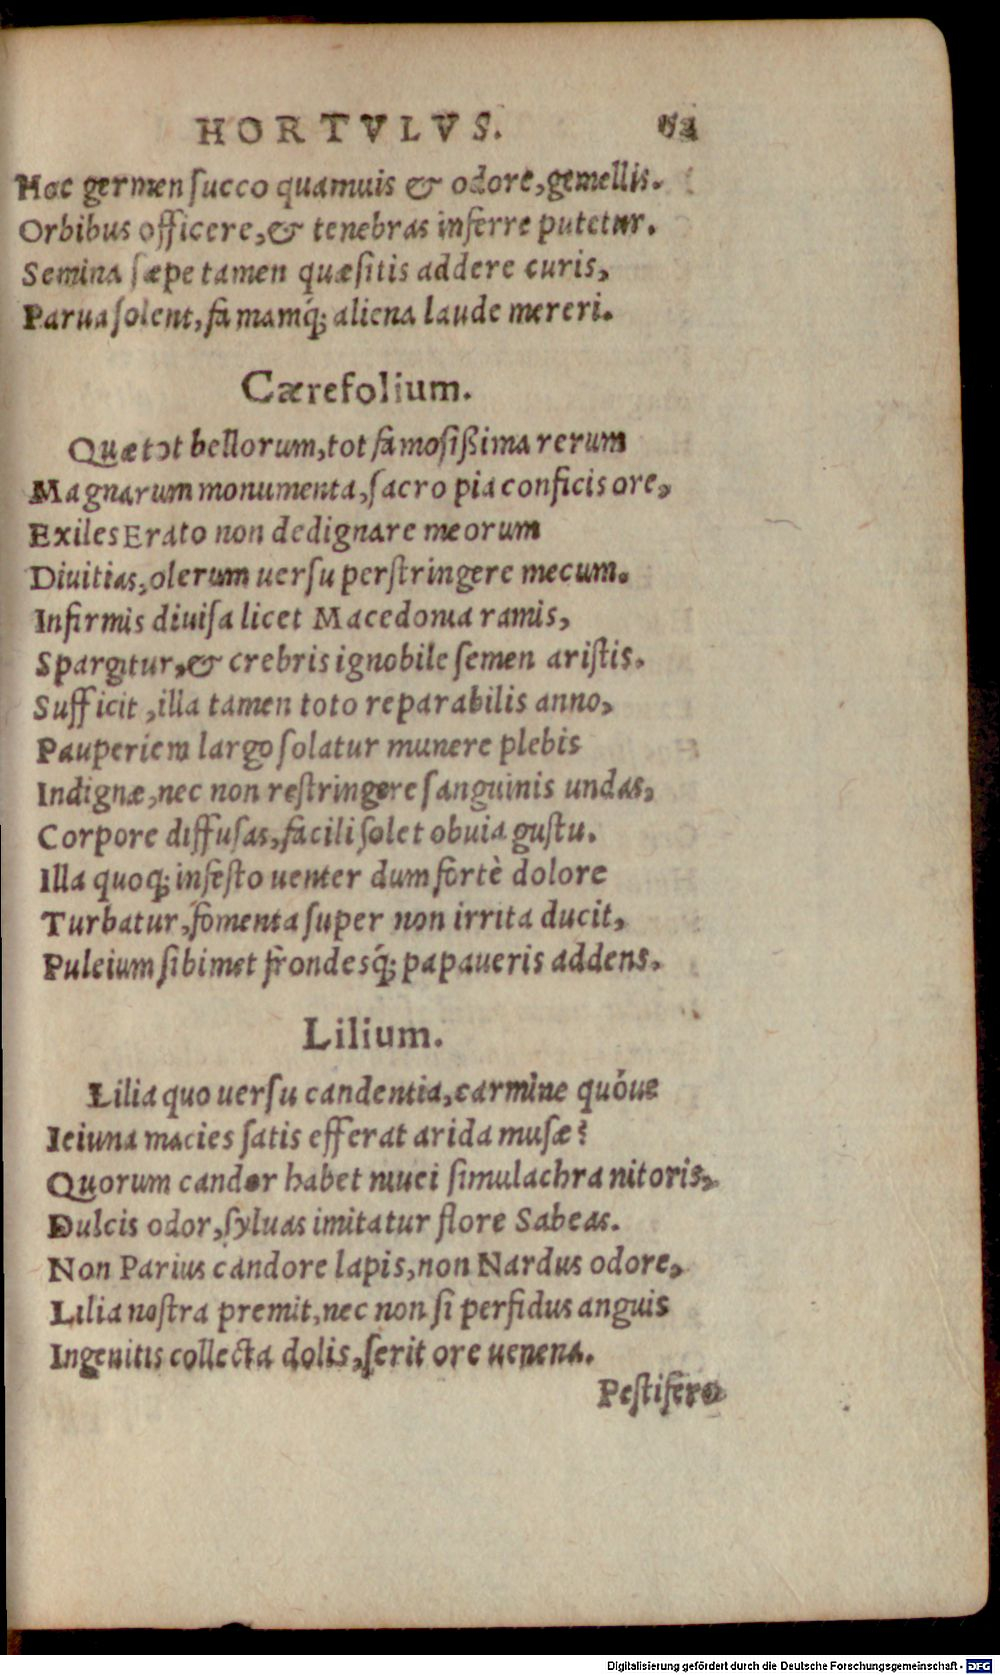 HORTVLVS.
Hoc germen ſucco quamuis & odore, gemellis.
Orbibus officere, & tenebras inferre putetur.
Semina ſæpe tamen quæſitis addere curis,
Parua ſolent, famamq́; aliena laude mereri.
Cærefolium.
Quæ tot bellorum, tot famoſiſſima rerum
Magnarum monumenta, ſacro pia conficis ore,
Exiles Erato non dedignare meorum
Diuitias, olerum uerſu perſtringere mecum.
Infirmis diuiſa licet Macedonia ramis,
Spargitur, & crebris ignobile ſemen ariſtis.
Sufficit, illa tamen toto reparabilis anno,
Pauperiem largo ſolatur munere plebis
Indignæ, nec non reſtringere ſanguinis undas,
Corpore diffuſas, facili ſolet obuia guſtu.
Illa quoq; infeſto uenter dum fortè dolore
Turbatur, fomenta ſuper non irrita ducit,
Puleium ſibimet frondesq́; papaueris addens.
Lilium.
Lilia quo uerſu candentia, carmine quóue
Ieiuna macies ſatis efferat arida muſæ?
Quorum candor habet niuei ſimulachra nitoris,
Dulcis odor, ſyluas imitatur flore Sabeas.
Non Parius candore lapis, non Nardus odore,
Lilia noſtra premit, nec non ſi perfidus anguis
Ingenitis collecta dolis, ſerit ore uenena.
Peſtifero
Digitalisierung gefördert durch die Deutsche Forschungsgemeinschaft - DFG